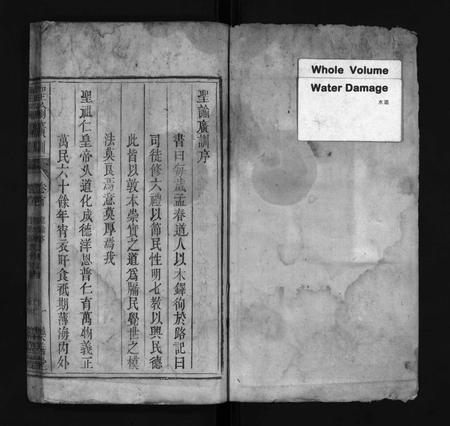 聖諭廣訓序
書曰每歲孟春遒人以木鐸徇於路記曰
司徒修六禮以節民性明七教以興民德
此皆以敦本崇實之道為牖民覺世之模
法莫良焉意莫厚焉我
聖祖仁皇帝久道化成德洋恩普仁育萬物義正
萬民六十餘年宵衣旰食祇期薄海內外
聖諭廣訓
Whole Volume
Water Damage
水漬